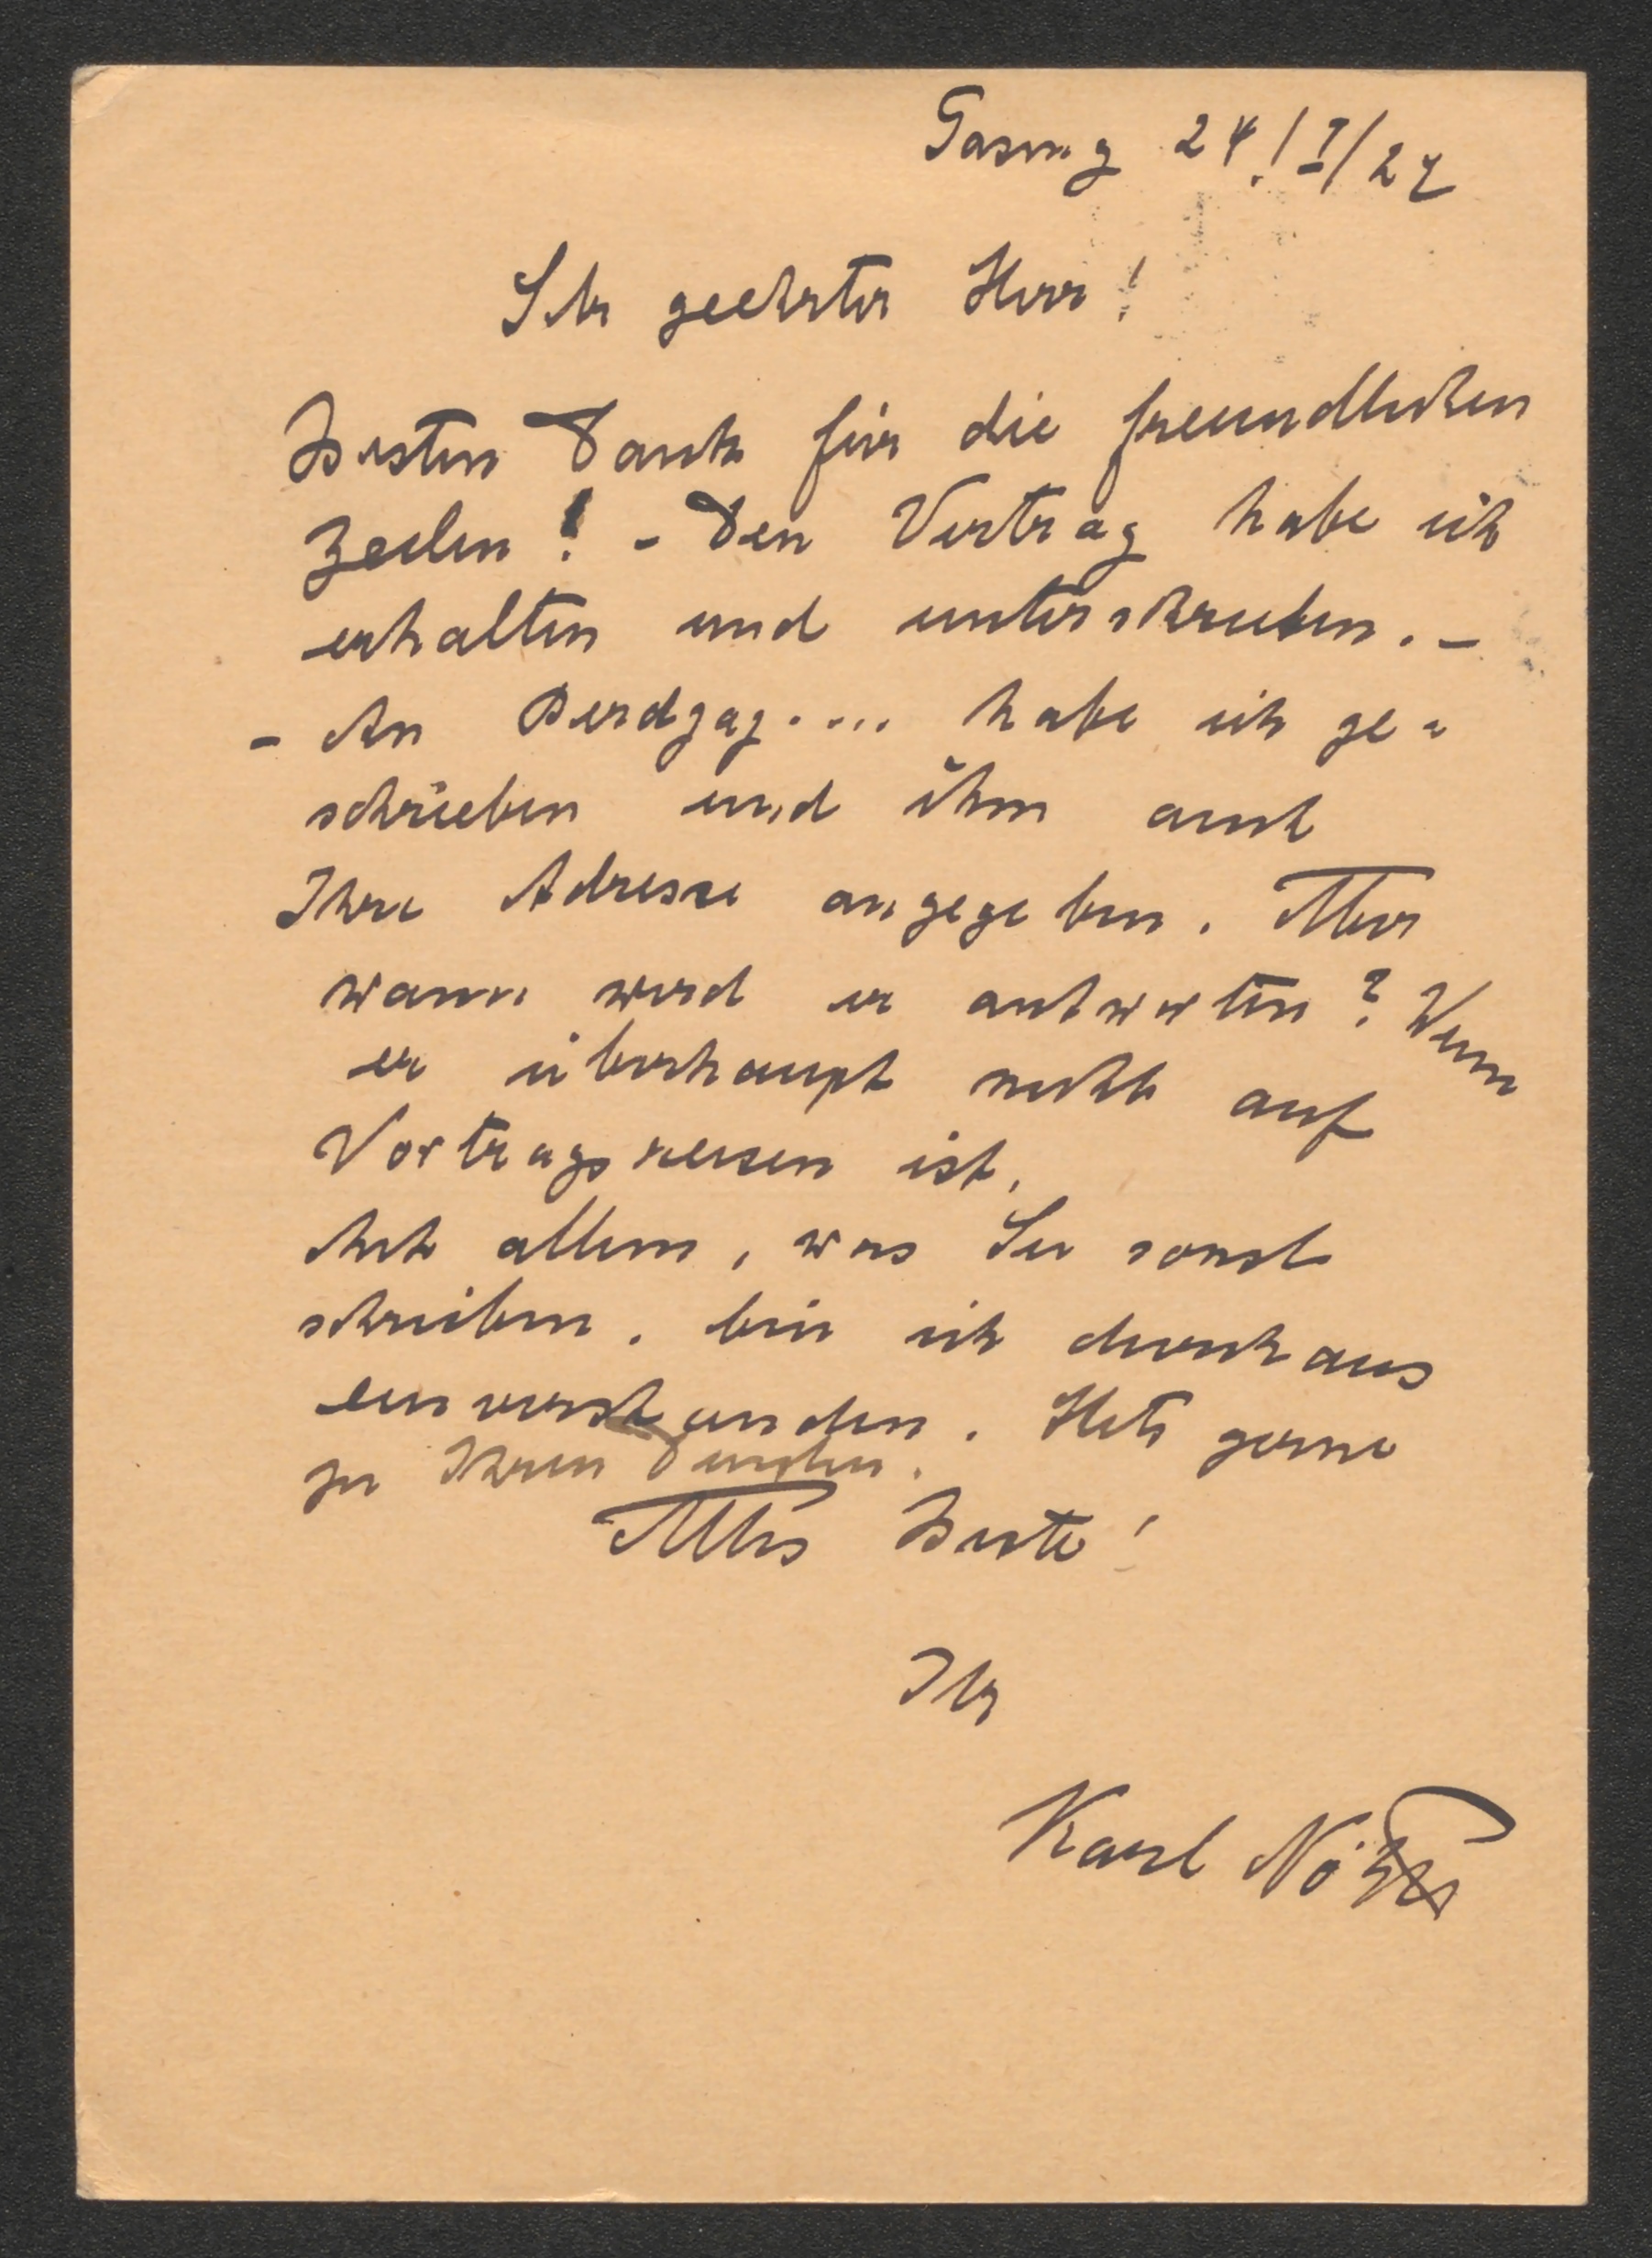 Gasing 24./I/27
Sehr geehrter Herr!
Besten Dank für die freundlichen
Zeilen! - Den Vertrag habe ich
erhalten und unterschrieben. -
- An habe ich ge-
schrieben und ihm auch
Ihre Adresse angegeben. Aber
wann wird er antworten? Wenn
er überhaupt nicht auf
Vortragsreisen ist.
Mit allem, was Sie sonst
schreiben, bin ich durchaus
einverstanden. Stets gerne
zu Ihren Diensten.
Alles Beste!
Ihr
Karl Nötzel